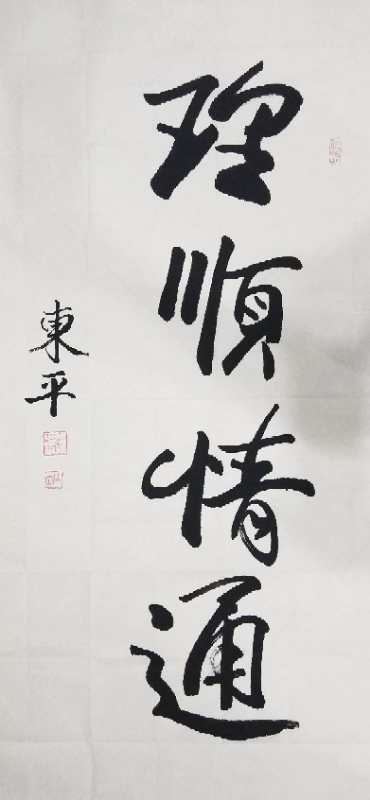 理順情通
東平